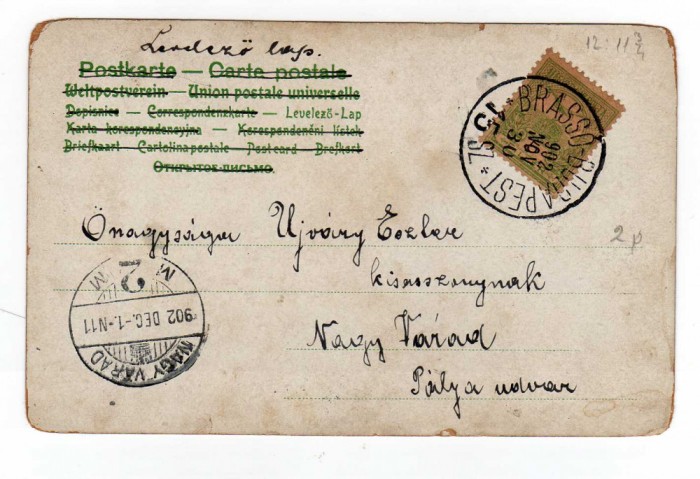 Levelező lap.
12.11 3/4
Postkarte — Carte postale
Weltpostverein — Union postale universelle
Dopisnice — Correspondenzkarte — Levelező-Lap
Karta korespondencyjna — Korespondenční lístek
Briefkaart — Cartolina postale — Post card — Brefkort
Открытое письмо.
BRASSÓ-BUDAPEST * 45 SZ *
902
NOV
30
Önagysága Ujváry Eszter
kisasszonynak
2 p
Nagy Várad
Pálya udvar
M 2 M
902 DEC.-1.-N11
NAGYVÁRAD